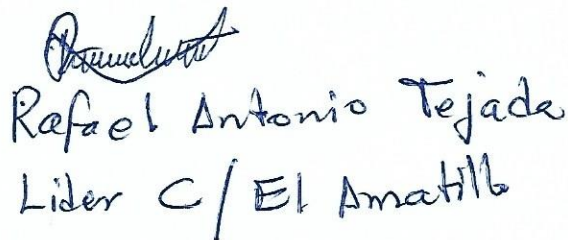 Rafael Antonio Tejada
Lider C/El Amatillo